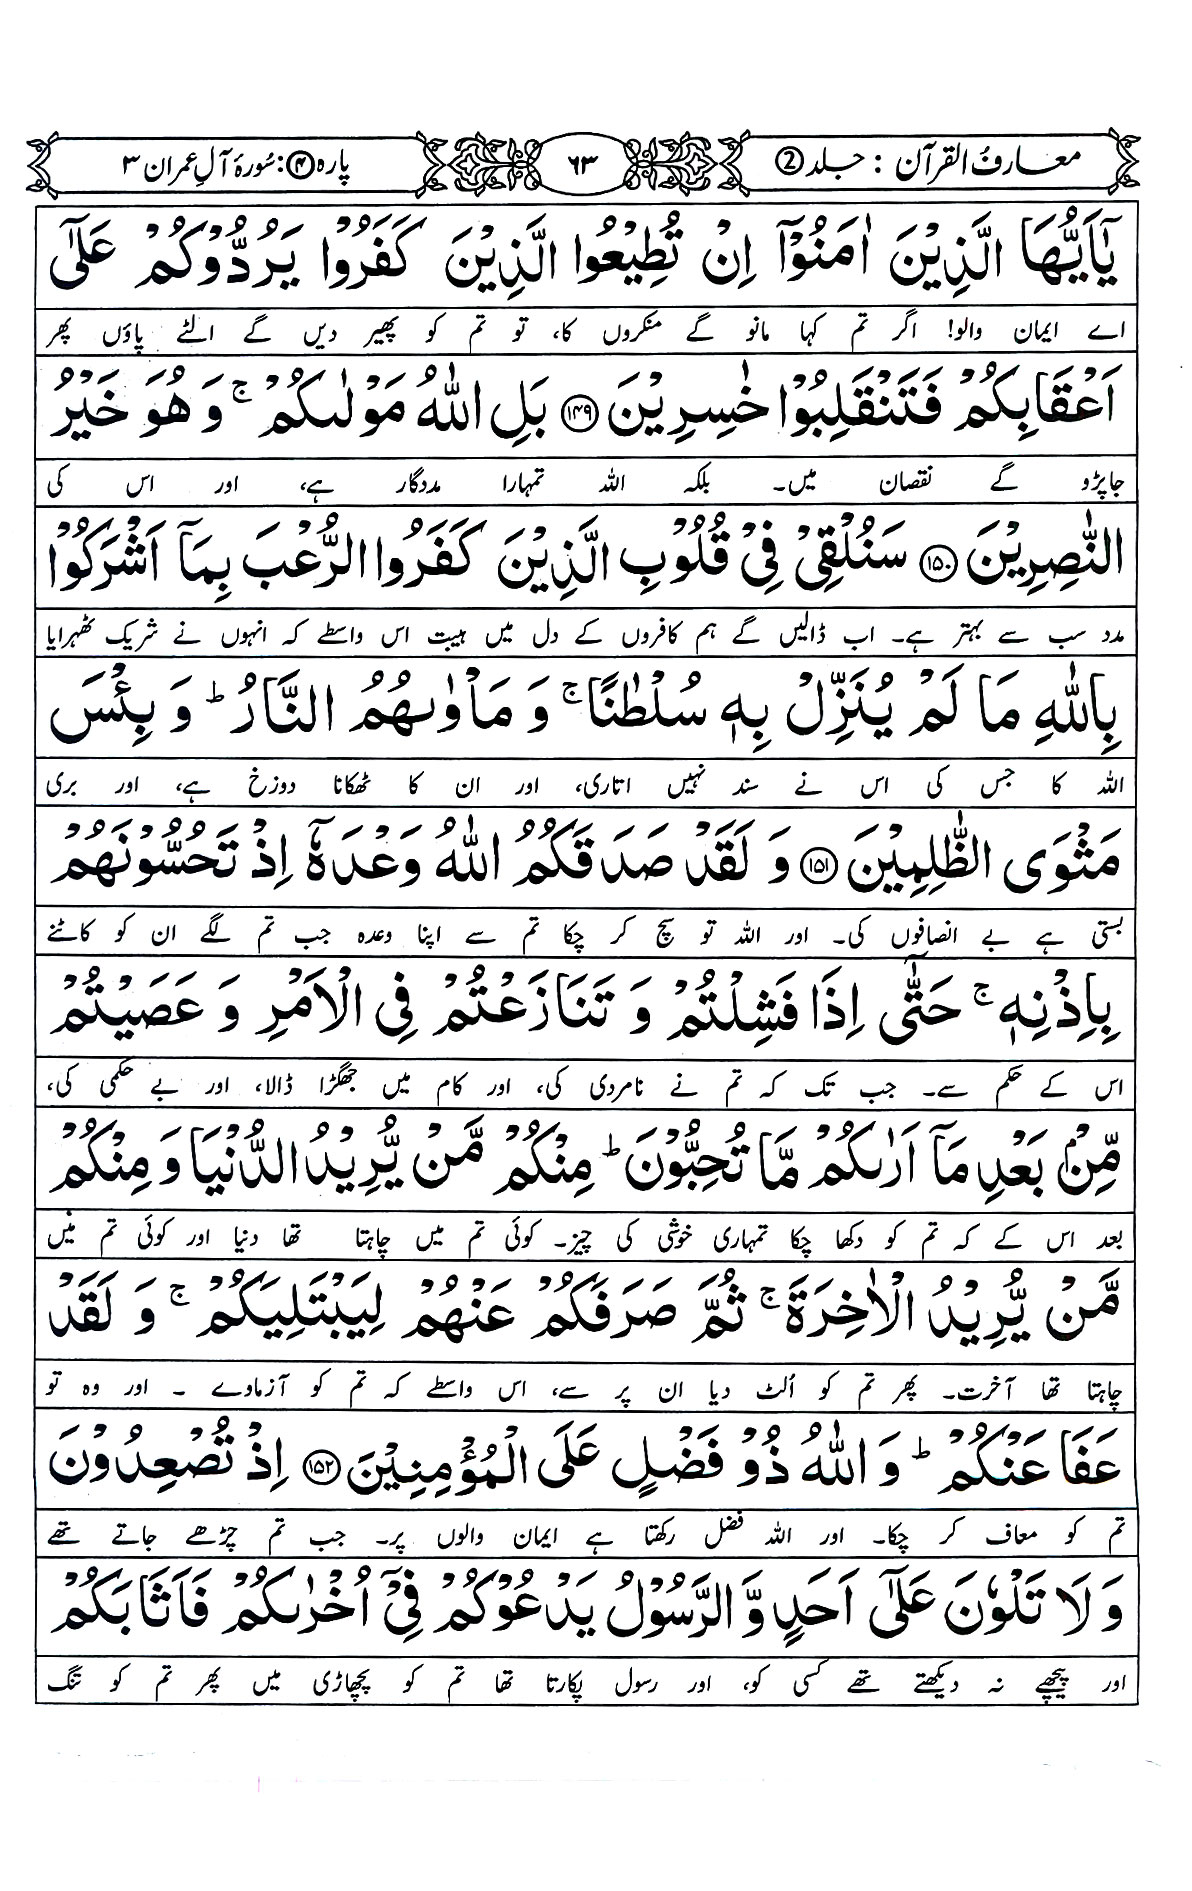 معارف القرآن : جلد ② ۶۳ پارہ ④ : سُورۂ آلِ عمران ۳
يٰۤاَيُّهَا الَّذِيْنَ اٰمَنُوْۤا اِنْ تُطِيْعُوا الَّذِيْنَ كَفَرُوْا يَرُدُّوْكُمْ عَلٰۤى
اے ایمان والو! اگر تم کہا مانو گے منکروں کا، تو تم کو پھیر دیں گے الٹے پاؤں پھر
اَعْقَابِكُمْ فَتَنْقَلِبُوْا خٰسِرِيْنَ ﴿۱۴۹﴾ بَلِ اللّٰهُ مَوْلٰىكُمْ ۚ وَ هُوَ خَيْرُ
جاپڑو گے نقصان میں۔ بلکہ اللہ تمہارا مددگار ہے، اور اس کی
النّٰصِرِيْنَ ﴿۱۵۰﴾ سَنُلْقِيْ فِيْ قُلُوْبِ الَّذِيْنَ كَفَرُوا الرُّعْبَ بِمَاۤ اَشْرَكُوْا
مدد سب سے بہتر ہے۔ اب ڈالیں گے ہم کافروں کے دل میں ہیبت اس واسطے کہ انہوں نے شریک ٹھہرایا
بِاللّٰهِ مَا لَمْ يُنَزِّلْ بِهٖ سُلْطٰنًا ۚ وَ مَاْوٰىهُمُ النَّارُ ؕ وَ بِئْسَ
اللہ کا جس کی اس نے سند نہیں اتاری، اور ان کا ٹھکانا دوزخ ہے، اور بری
مَثْوَى الظّٰلِمِيْنَ ﴿۱۵۱﴾ وَ لَقَدْ صَدَقَكُمُ اللّٰهُ وَعْدَهٗۤ اِذْ تَحُسُّوْنَهُمْ
بستی ہے بے انصافوں کی۔ اور اللہ تو سچ کر چکا تم سے اپنا وعدہ جب تم لگے ان کو کاٹنے
بِاِذْنِهٖ ۚ حَتّٰۤى اِذَا فَشِلْتُمْ وَ تَنَازَعْتُمْ فِى الْاَمْرِ وَ عَصَيْتُمْ
اس کے حکم سے۔ جب تک کہ تم نے نامردی کی، اور کام میں جھگڑا ڈالا، اور بے حکمی کی،
مِّنْۢ بَعْدِ مَاۤ اَرٰىكُمْ مَّا تُحِبُّوْنَ ؕ مِنْكُمْ مَّنْ يُّرِيْدُ الدُّنْيَا وَ مِنْكُمْ
بعد اس کے کہ تم کو دکھا چکا تمہاری خوشی کی چیز۔ کوئی تم میں چاہتا تھا دنیا اور کوئی تم میں
مَّنْ يُّرِيْدُ الْاٰخِرَةَ ۚ ثُمَّ صَرَفَكُمْ عَنْهُمْ لِيَبْتَلِيَكُمْ ۚ وَ لَقَدْ
چاہتا تھا آخرت۔ پھر تم کو اُلٹ دیا ان پر سے، اس واسطے کہ تم کو آزماوے ۔ اور وہ تو
عَفَا عَنْكُمْ ؕ وَ اللّٰهُ ذُوْ فَضْلٍ عَلَى الْمُؤْمِنِيْنَ ﴿۱۵۲﴾ اِذْ تُصْعِدُوْنَ
تم کو معاف کر چکا۔ اور اللہ فضل رکھتا ہے ایمان والوں پر۔ جب تم چڑھے جاتے تھے
وَ لَا تَلْوٗنَ عَلٰۤى اَحَدٍ وَّ الرَّسُوْلُ يَدْعُوْكُمْ فِيْۤ اُخْرٰىكُمْ فَاَثَابَكُمْ
اور پیچھے نہ دیکھتے تھے کسی کو، اور رسول پکارتا تھا تم کو پچھاڑی میں پھر تم کو تنگ